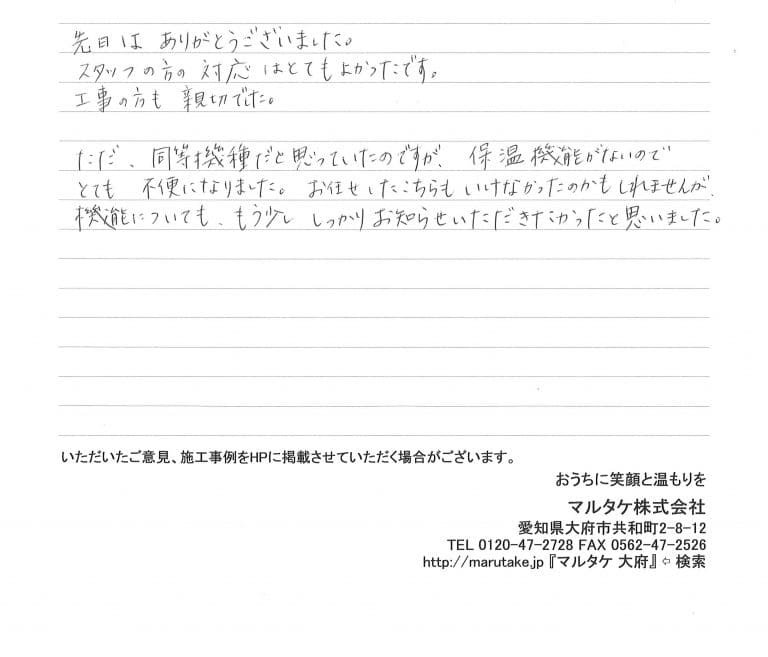 先日は ありがとうございました。
スタッフの方の 対応 はとてもよかったです。
工事の方も 親切でした。
ただ、同等機種だと思っていたのですが、保温機能がないので
とても 不便になりました。お任せしたこちらも いけなかったのかもしれませんが、
機能についても、もう少し しっかり お知らせいただきたかったと思いました。
いただいたご意見、施工事例をHPに掲載させていただく場合がございます。
おうちに笑顔と温もりを
マルタケ株式会社
愛知県大府市共和町2-8-12
TEL 0120-47-2728 FAX 0562-47-2526
http://marutake.jp『マルタケ 大府』⇦ 検索